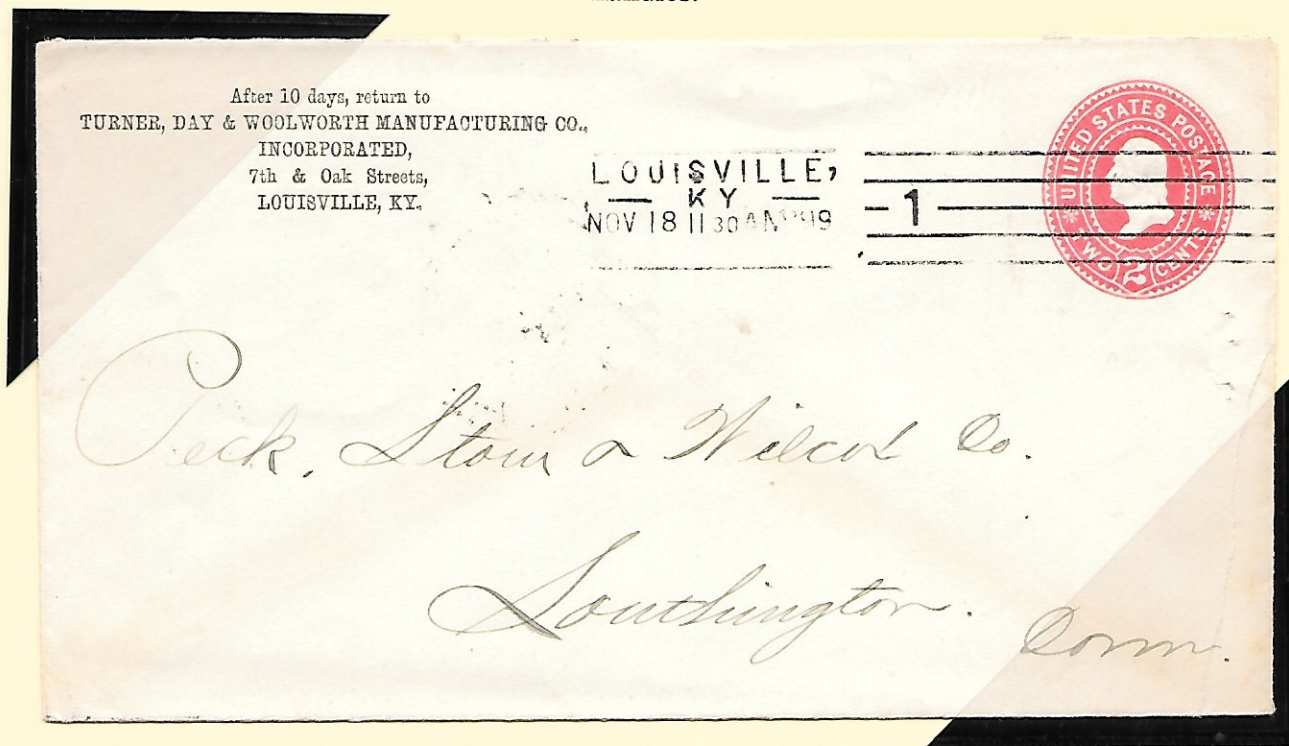 After 10 days, return to
TURNER, DAY & WOOLWORTH MANUFACTURING CO.,
INCORPORATED,
7th & Oak Streets,
LOUISVILLE, KY.
LOUISVILLE,
KY
NOV 18 11 30 AM '99
1
UNITED STATES POSTAGE
TWO 2 CENTS
Peck, Stow & Wilcox Co.
Southington.
Conn.